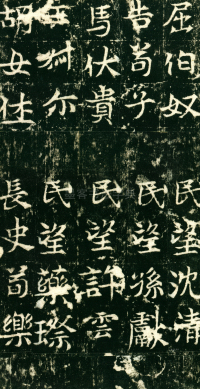 屈伯奴
苟子
馬伏貴
尔
胡女
民望沈清
民望孫獻
民望許雲
民望樂
長史苟樂